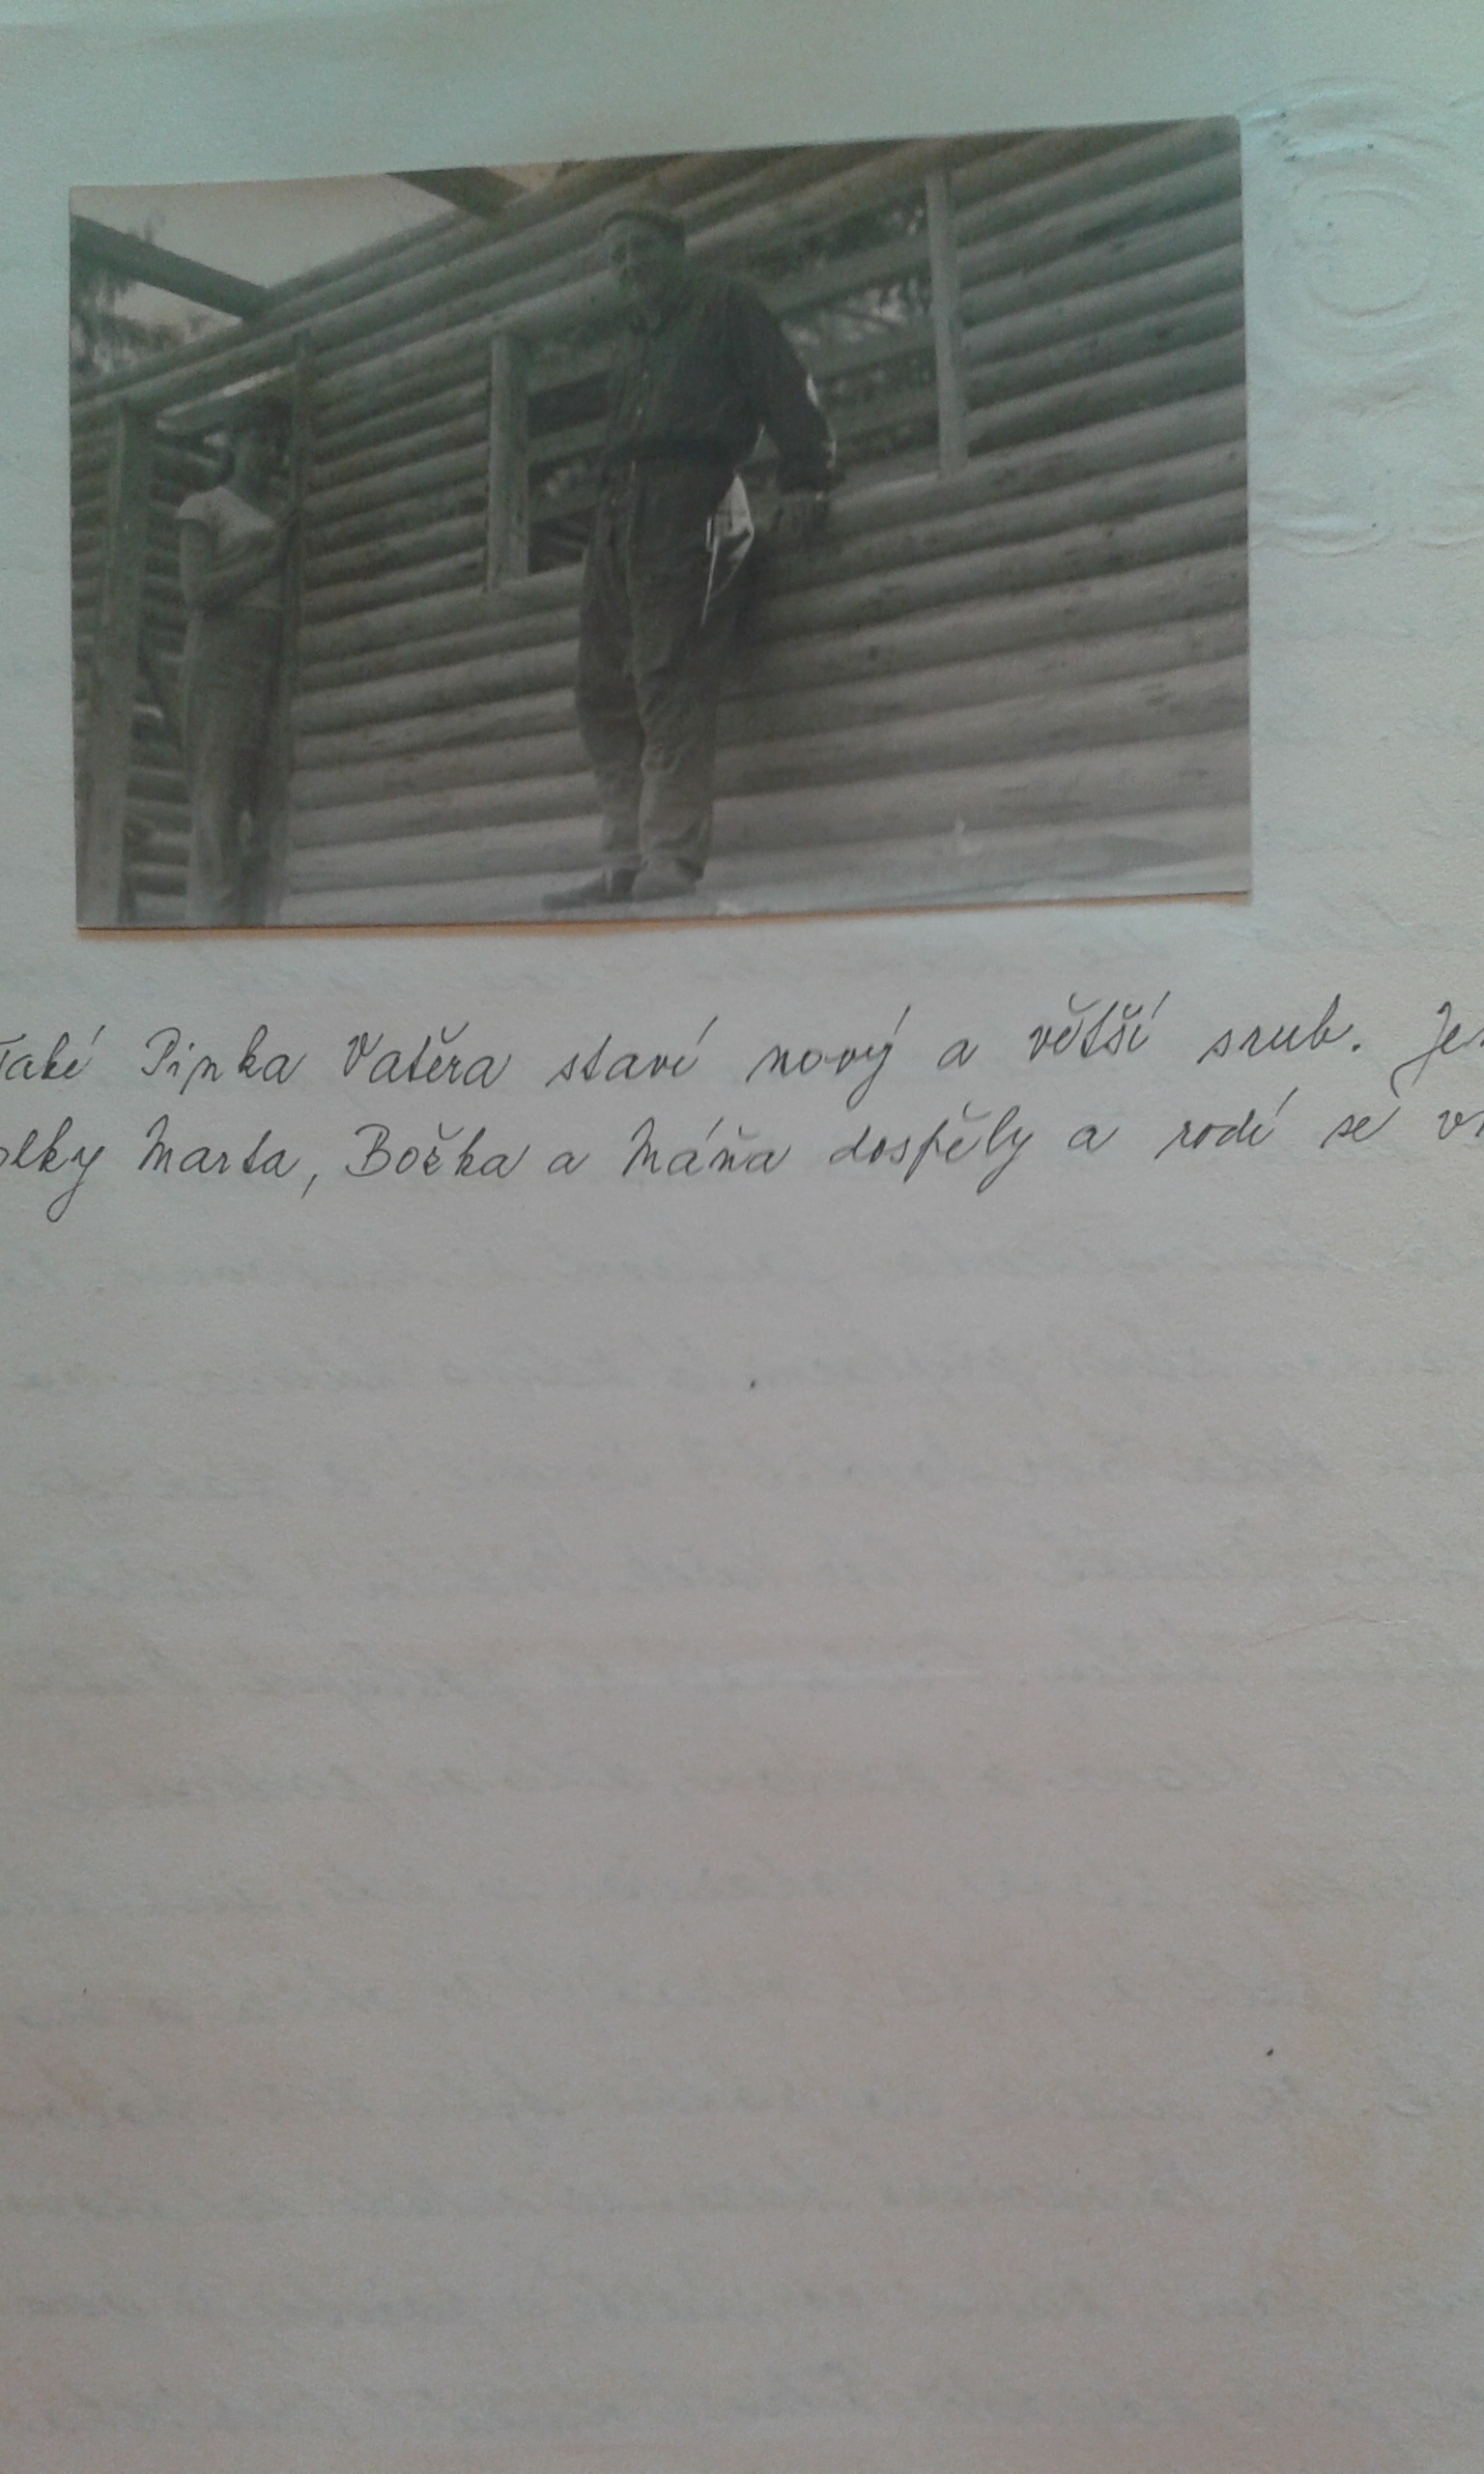 Také Pinka Vatěra staví nový a větší srub. Je
Marta, Božka a Máňa dospěly a rodí se